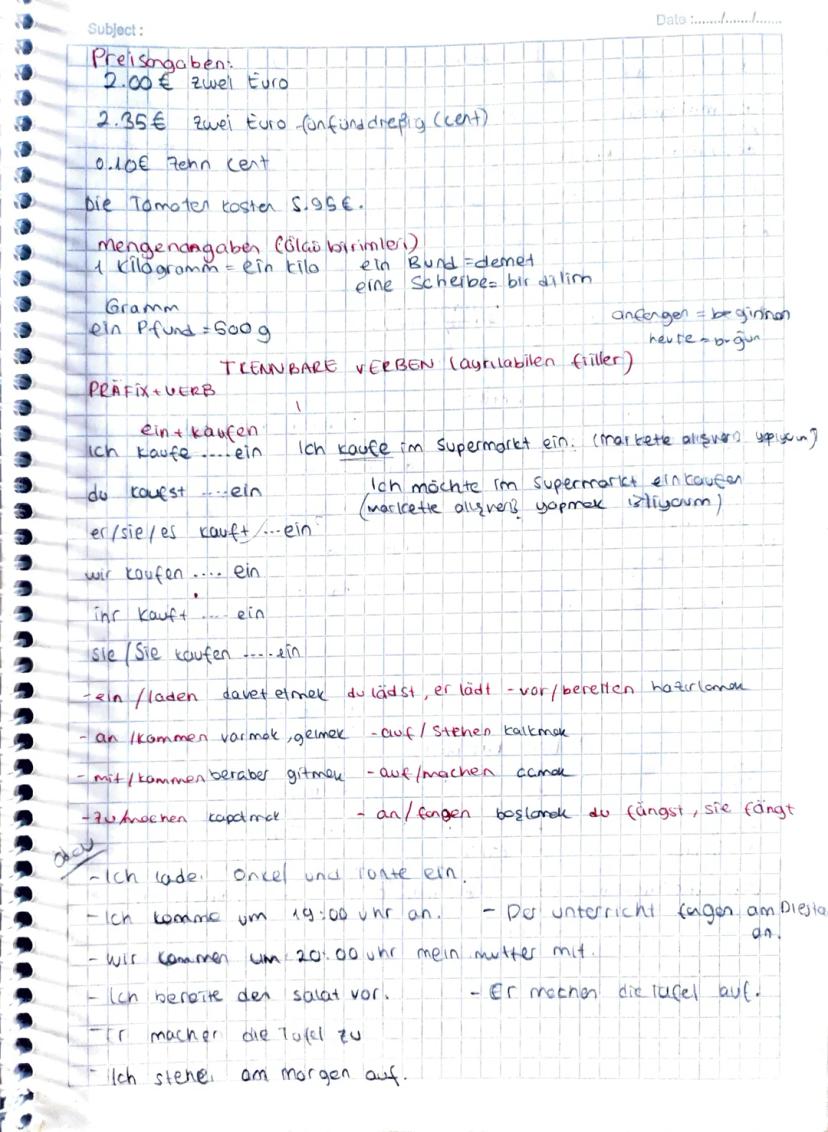 Subject :
Date :......./......./.......
Preisangaben:
2.00 € zwei Euro
2.35€ zwei Euro fünfünddreßig (cent)
0.10€ Zehn Cent
Die Tomaten kosten 5.95€.
mengenangaben (ölçü birimleri)
1 Kilogramm = ein kilo ein Bund = demet
eine Scheibe = bir dilim
Gramm
ein Pfund = 500 g
anfangen = beginnen
heute = bugün
TRENNBARE VERBEN (ayrılabilen fiiller)
PRÄFİX + VERB
ein + kaufen
ich kaufe ..... ein Ich kaufe im Supermarkt ein. (markete alışveriş yapıyorum)
du kaufst ..... ein Ich möchte im Supermarkt einkaufen
(markette alışveriş yapmak istiyorum)
er/sie/es kauft ... ein
wir kaufen .... ein
ihr kauft .... ein
sie / Sie kaufen ..... ein
- ein / laden davet etmek du lädst, er lädt - vor / bereiten hazırlamak
- an / kommen varmak, gelmek - auf / stehen kalkmak
- mit / kommen beraber gitmek - auf / machen açmak
- zu / machen kapatmak - an / fangen başlamak du fängst, sie fängt
- Ich lade Onkel und Tante ein.
- Ich komme um 19:00 uhr an. - Der unterricht fangen am Diesta
an.
- Wir kommen um 20:00 uhr mein mutter mit.
- Ich bereite den salat vor. - Er machen die tafel auf.
- Er machen die Tafel zu
- Ich stehe am morgen auf.